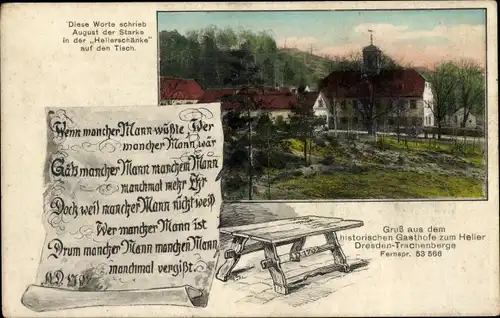 Diese Worte schrieb
August der Starke
in der „Hellerschänke"
auf den Tisch.
Wenn mancher Mann wüßte Wer
mancher Mann wär
Gäb mancher Mann manchem Mann
manchmal mehr Ehr
Doch weil mancher Mann nicht weiß
Wer mancher Mann ist
Drum mancher Mann manchen Mann
manchmal vergißt.
Gruß aus dem
historischen Gasthofe zum Heller
Dresden-Trachenberge
Fernspr. 53 566